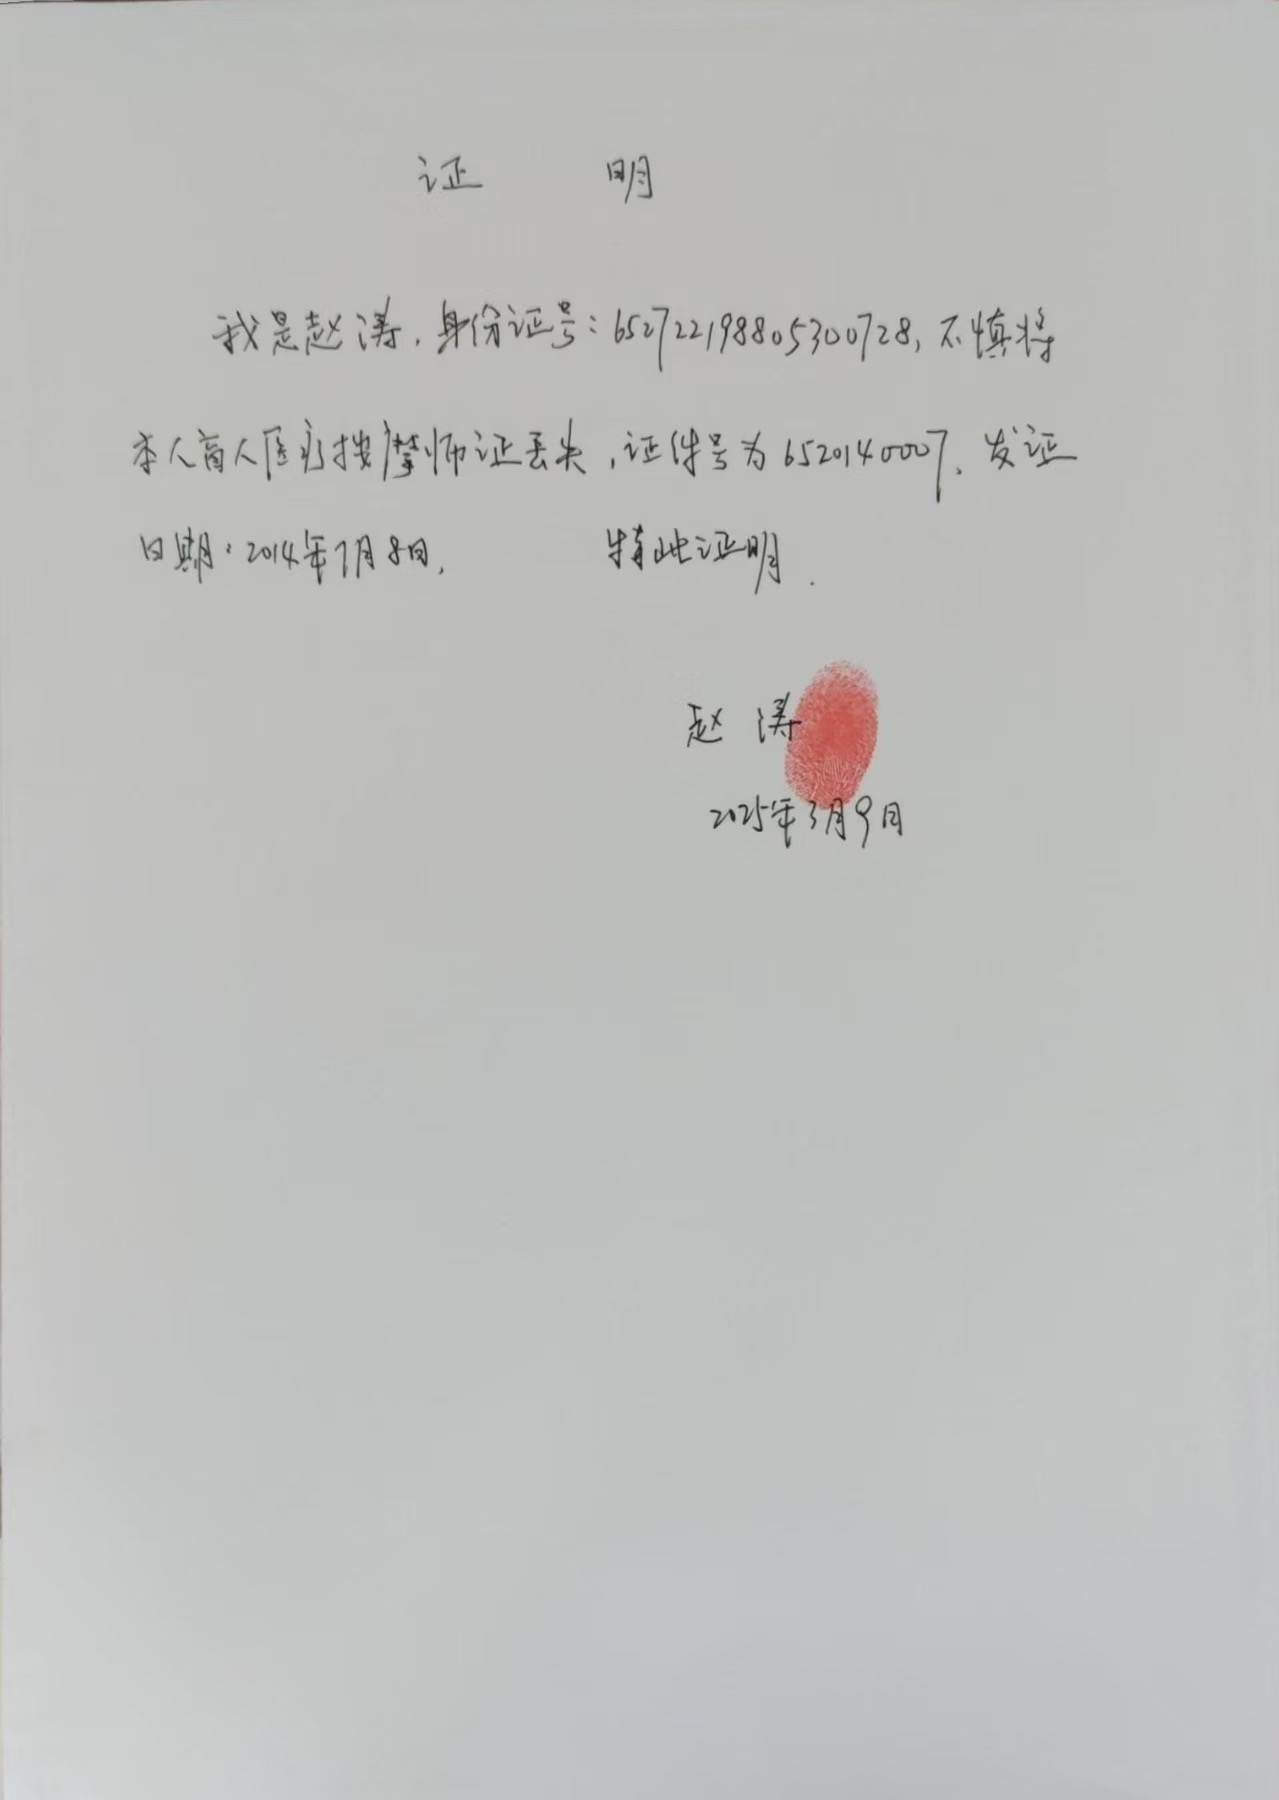 证 明
我是赵涛，身份证号：652722198805300728，不慎将
本人盲人医疗按摩师证丢失，证件号为6520140007、发证
日期：2014年7月8日， 特此证明．
赵涛
2025年3月9日